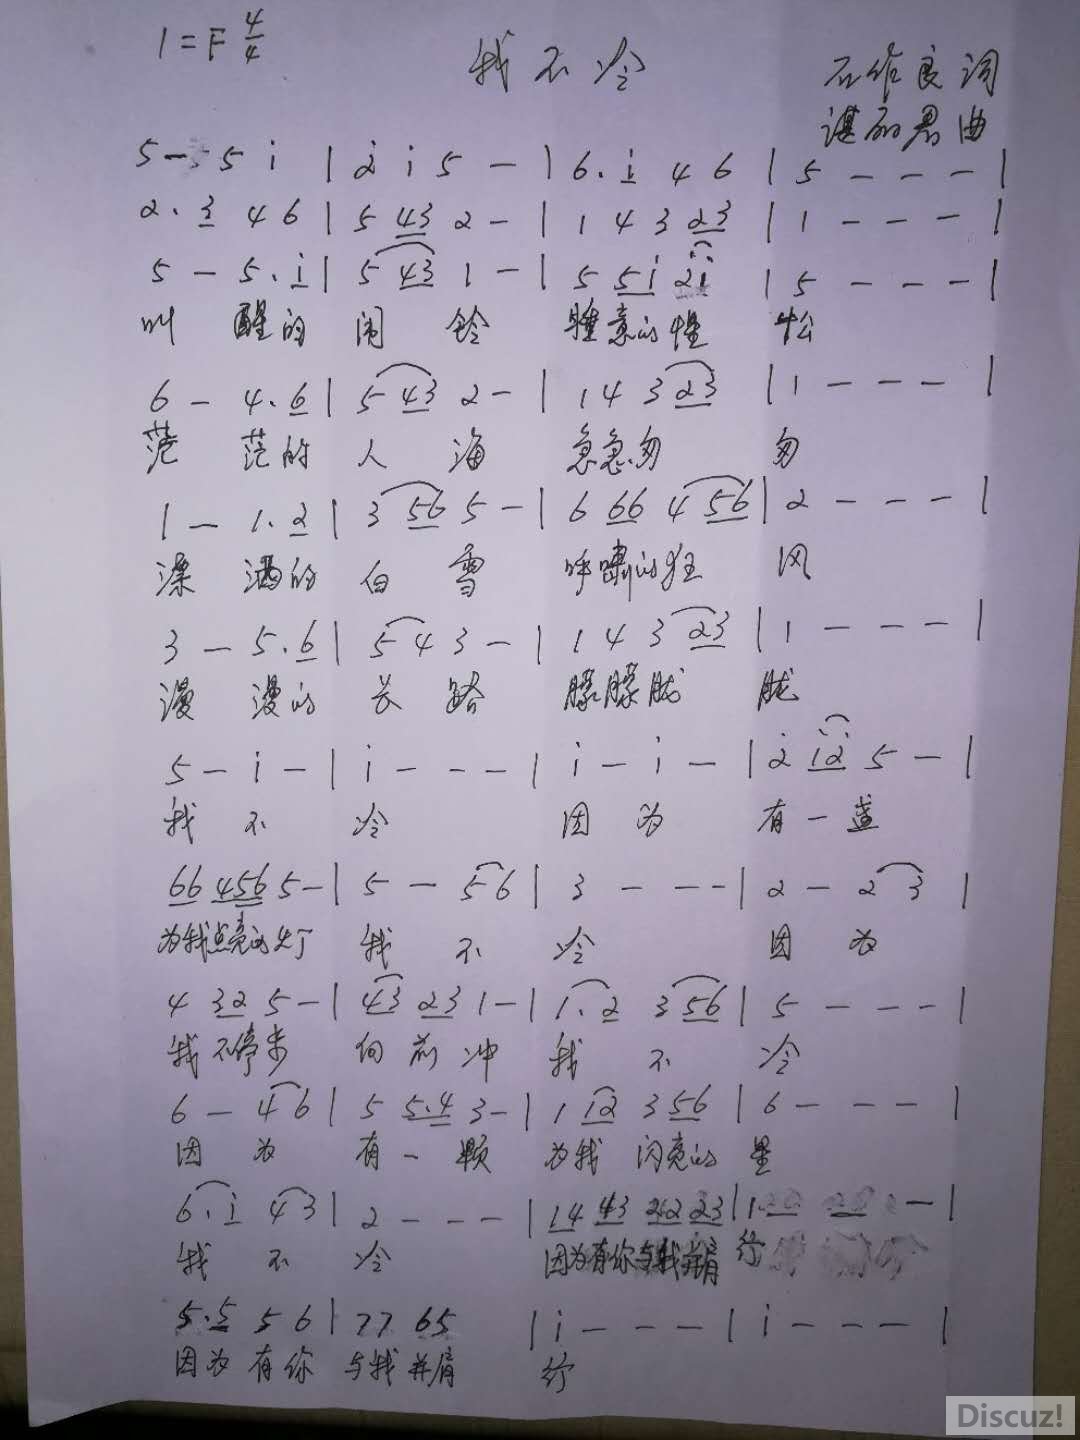 1=F 4/4
我不冷
石作良词
谌丽君曲
5 - 5 i | 2 i 5 - | 6. i 4 6 | 5 - - - |
2. 3 4 6 | 5 43 2 - | 1 4 3 23 | 1 - - - |
5 - 5. i | 5 43 1 - | 5 5i 2i | 5 - - - |
叫 醒的 闹 铃 睡意的惺 忪
6 - 4. 6 | 5 43 2 - | 1 4 3 23 | 1 - - - |
茫 茫的 人 海 急急匆 匆
1 - 1. 2 | 3 56 5 - | 6 66 4 56 | 2 - - - |
的 白 雪 呼啸的狂 风
3 - 5. 6 | 5 4 3 - | 1 4 3 23 | 1 - - - |
漫 漫的 长 路 朦朦胧 胧
5 - i - | i - - - | i - i - | 2 i2 5 - |
我 不 冷 因 为 有 一 盏
66 456 5 - | 5 - 5 6 | 3 - - - | 2 - 2 3 |
为我点亮的灯 我 不 冷 因 为
4 32 5 - | 43 23 1 - | 1. 2 3 56 | 5 - - - |
我 不停步 向 前 冲 我 不 冷
6 - 4 6 | 5 5.4 3 - | 1 12 3 56 | 6 - - - |
因 为 有 一 颗 为我 闪亮的 星
6. i 4 3 | 2 - - - | 14 43 22 23 | 1 - |
我 不 冷 因为有你与我并肩 行
5. 5 5 6 | 77 65 | i - - - | i - - - |
因为 有 你 与我 并肩 行
Discuz!